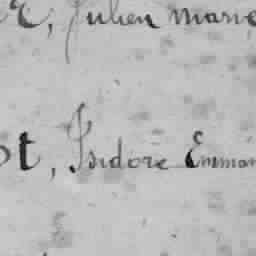 Julien Marie
Isidore Emman